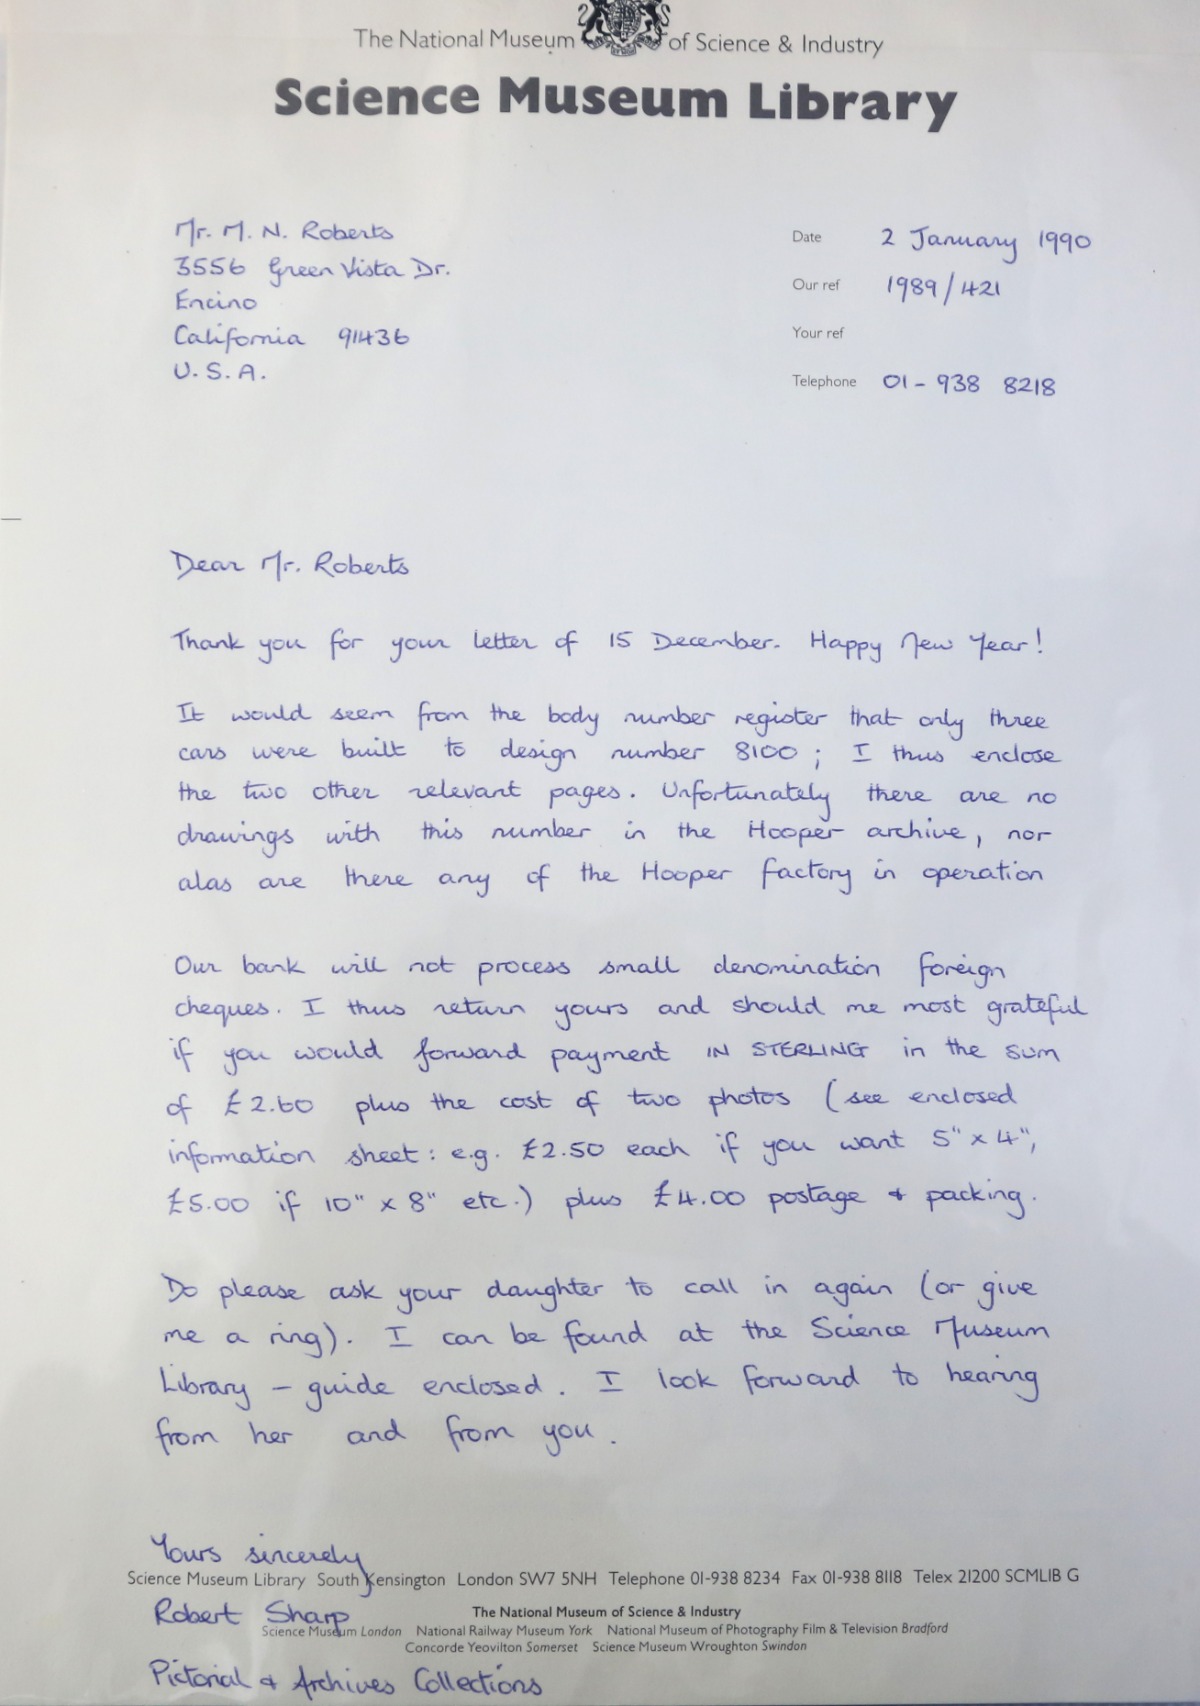 The National Museum of Science & Industry
Science Museum Library
Mr. M. N. Roberts
3556 Green Vista Dr.
Encino
California 91436
U.S.A.
Date 2 January 1990
Our ref 1989/421
Your ref
Telephone 01-938 8218
Dear Mr. Roberts
Thank you for your letter of 15 December. Happy New Year!
It would seem from the body number register that only three
cars were built to design number 8100; I thus enclose
the two other relevant pages. Unfortunately there are no
drawings with this number in the Hooper archive, nor
alas are there any of the Hooper factory in operation
Our bank will not process small denomination foreign
cheques. I thus return yours and should me most grateful
if you would forward payment IN STERLING in the sum
of £2.60 plus the cost of two photos (see enclosed
information sheet: e.g. £2.50 each if you want 5" x 4",
£5.00 if 10" x 8" etc.) plus £4.00 postage & packing.
Do please ask your daughter to call in again (or give
me a ring). I can be found at the Science Museum
Library - guide enclosed. I look forward to hearing
from her and from you.
Yours sincerely
Science Museum Library South Kensington London SW7 5NH Telephone 01-938 8234 Fax 01-938 8118 Telex 21200 SCMLIB G
Robert Sharp
The National Museum of Science & Industry
Science Museum London National Railway Museum York National Museum of Photography Film & Television Bradford
Concorde Yeovilton Somerset Science Museum Wroughton Swindon
Pictorial & Archives Collections